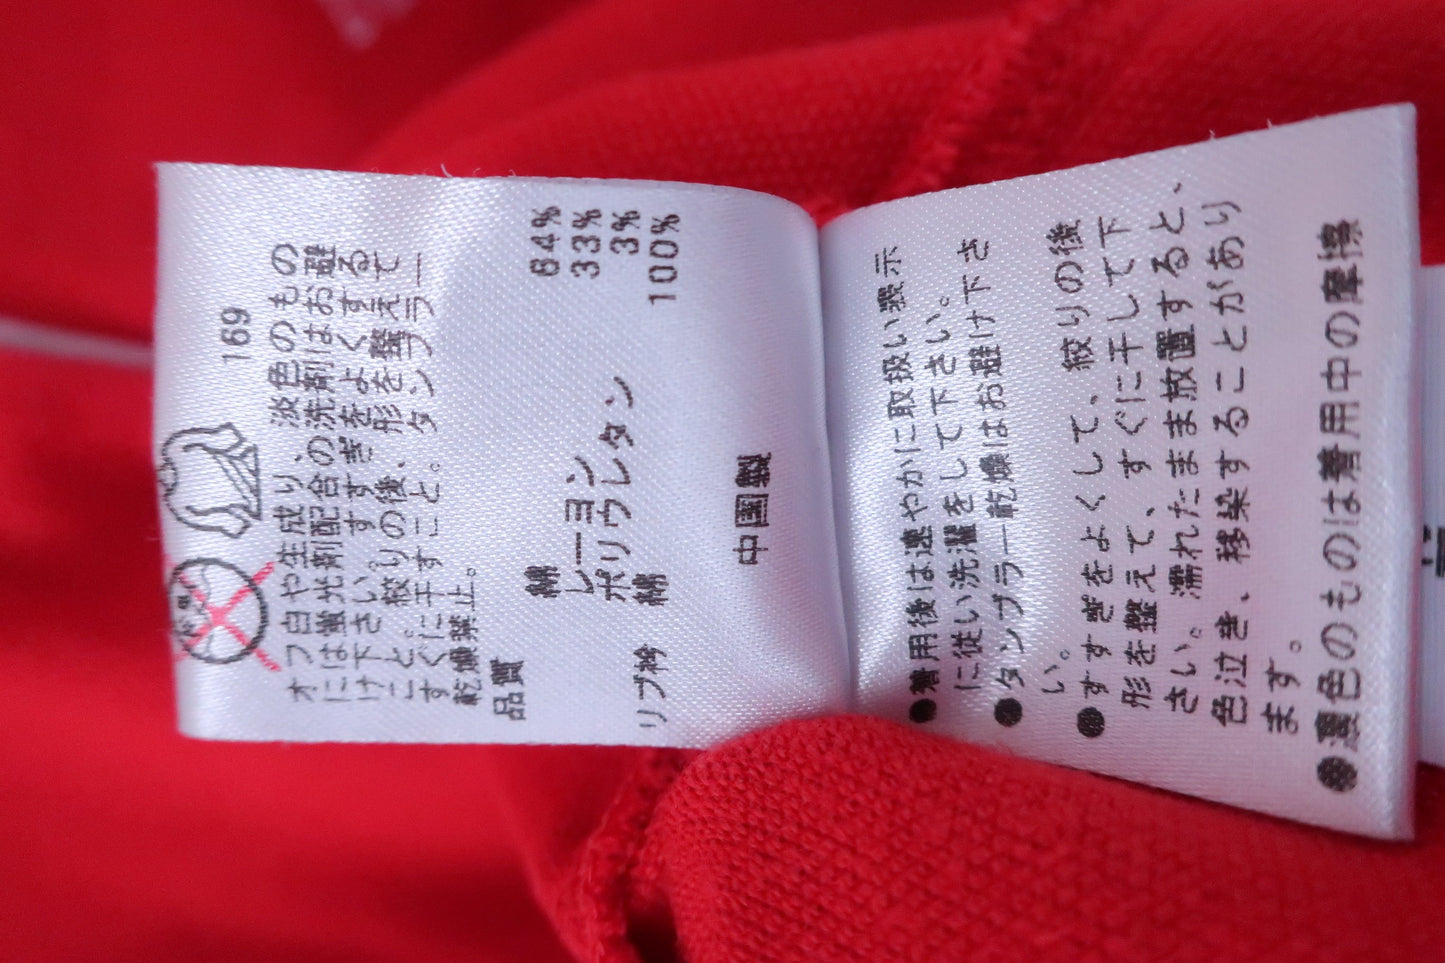 169
オフ白や生成り、淡色のもの
には蛍光剤配合の洗剤はお避
け下さい。すすぎをよくする
こと。絞りの後、形を整えて
すぐに干すこと。タンブラー
乾燥禁止。
品質
綿 64%
レーヨン 33%
ポリウレタン 3%
リブ衿 綿 100%
中国製
●着用後は速やかに取扱い表示
に従い洗濯をして下さい。
●タンブラー乾燥はお避け下さ
い。
●すすぎをよくして、絞りの後
形を整えて、すぐに干して下
さい。濡れたまま放置すると、
色泣き、移染することがあり
ます。
●濃色のものは着用中の摩擦